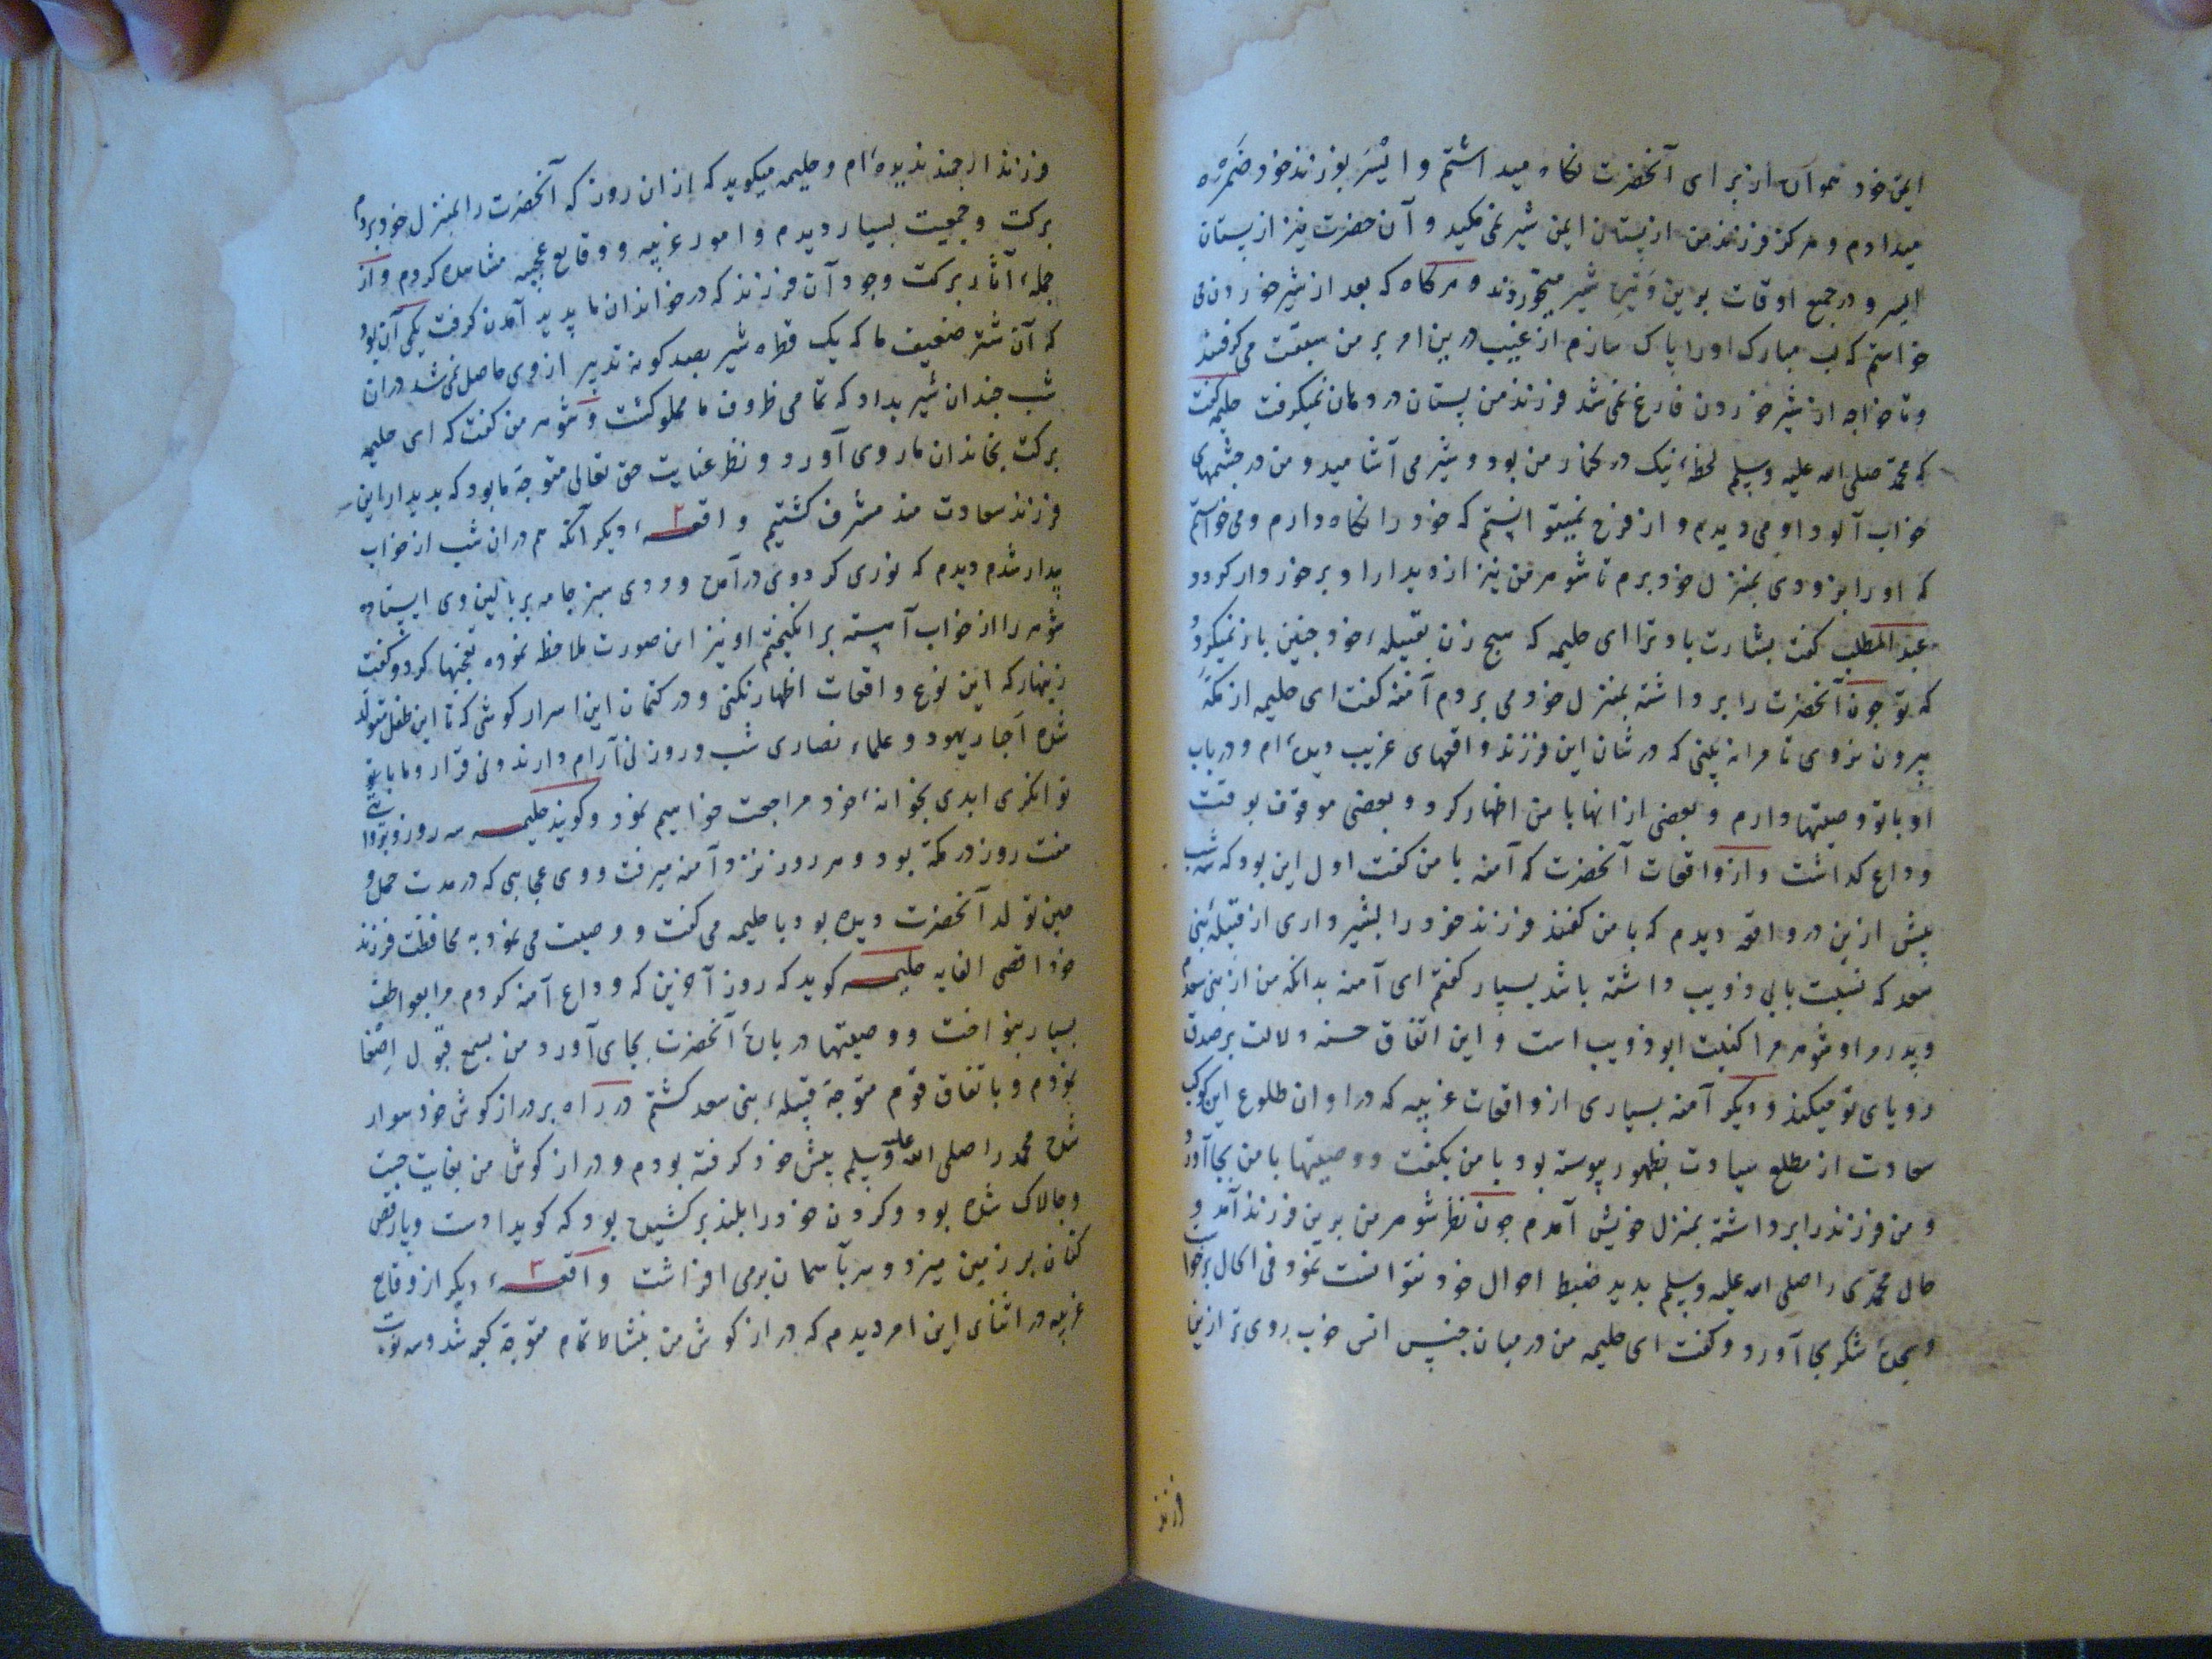 ایمن خود همواره از برای آنحضرت نکاه میداشتم و ایسر بفرزند خود ضمره
میدادم و هرکز فرزند من از پستان ایمن شیر نمی مکید و آن حضرت نیز از پستان
ایسر و در جمیع اوقات برین وتیره شیر میخوردند و هرکاه که بعد از شیر خوردن می
خواستم که لب مبارک او را پاک سازم از غیب درین امر بر من سبقت می کرفتند
و تا خواجه از شیر خوردن فارغ نمی شد فرزند من پستان در دهان نمیکرفت حلیمه کفت
که محمد صلی الله علیه وسلم لحظهٔ نیک در کنار من بود و شیر می آشامید و من در چشمهای
خواب آلود او می دیدم و از فرح نمیتوانستم که خود را نکاه دارم و می خواستم
که او را بزودی بمنزل خود برم تا شوهر من نیز از دیدار او برخوردار کردد
عبد المطلب کفت بشارت باد ترا ای حلیمه که هیچ زن بقبیلهٔ خود چنین باز نمیکردد
که تو چون آنحضرت را برداشته بمنزل خود می بردم آمنه کفت ای حلیمه از مکه
بیرون نروی تا مرا نه بینی که در شان این فرزند واقعهای غریب دیده ام و در باب
او با تو وصیتها دارم و بعضی از انها با من اظهار کرد و بعضی موقوف بوقت
وداع کداشت و از واقعات آنحضرت که آمنه با من کفت اول این بود که سه شب
پیش ازین در واقعه دیدم که با من کفتند فرزند خود را بشیر واری از قبیلهٔ بنی
سعد که نسبت بابی ذویب داشته باشد بسپار کفتم ای آمنه بدانکه من از بنی سعدم
و پدر و شوهر مرا کنیت ابو ذویب است و این اتفاق حسنه دلالت بر صدق
رویای تو میکند و دیکر آمنه بسیاری از واقعات غریبه که در اوان طلوع این کوکب
سعادت از مطلع سیادت بظهور پیوسته بود با من بکفت و وصیتها با من بجا آورد
و من فرزند را برداشته بمنزل خویش آمدم چون نظر شوهر من برین فرزند آمد و
جمال محمدی را صلی الله علیه وسلم بدید ضبط احوال خود نتوانست نمود فی الحال برخواست
و سجدهٔ شکر بجا آورد و کفت ای حلیمه من در میان جنس انس خوب روی تر ازین
فرزند
فرزند ارجمند ندیده ام و حلیمه میکوید که از ان روز که آنحضرت را بمنزل خود بردم
برکت و جمعیت بسیار دیدم و امور غریبه و وقایع عجیبه مشاهده کردم و از
جملهٔ آثار برکت وجود آن فرزند که در خاندان ما پدید آمدن کرفت یکی آن بود
که آن شتر ضعیف ما که یک قطره شیر بصد کونه تدبیر از وی حاصل نمی شد در ان
شب چندان شیر بداد که تمامی ظروف ما مملو کشت و شوهر من کفت که ای حلیمه
برکت بخاندان ما روی آورد و نظر عنایت حق تعالی متوجه ما بود که بدیدار این
فرزند سعادت مند مشرف کشتیم واقعهٔ ۲ دیکر آنکه هم در ان شب از خواب
بیدار شدم دیدم که نوری کرد وی در آمده و مردی سبز جامه بر بالین وی ایستاده
شوهر را از خواب آهسته برانکیختم او نیز این صورت ملاحظه نموده تعجبها کرد و کفت
زینهار که این نوع واقعات اظهار نکنی و در کتمان این اسرار کوشی که تا این طفل متولد
شده احبار یهود و علماء نصاری شب و روز نی آرام دارند و نی قرار و ما با تو
توانکری ابدی بخانهٔ خود مراجعت خواهیم نمود و کویند حلیمه سه روز و بروایتی
هفت روز در مکه بود و هر روز نزد آمنه میرفت و وی عجایبی که در مدت حمل و
حین تولد آنحضرت دیده بود با حلیمه می کفت و وصیت می نمود به محافظت فرزند
خود اقصی الغایه حلیمه کوید که روز آخرین که وداع آمنه کردم مرا بعواطف
بسیار بنواخت و وصیتها در بارهٔ آنحضرت بجای آورد و من بسمع قبول اصغا
نمودم و باتفاق قوم متوجه قبیلهٔ بنی سعد کشتم در راه بر دراز کوش خود سوار
شده محمد را صلی الله علیه وسلم پیش خود کرفته بودم و دراز کوش من بغایت چست
و چالاک شده بود و کردن خود را بلند برکشیده بود که کویدا دست و پا رقص
کنان بر زمین میزد و سر بآسمان بر می افراشت واقعهٔ ۳ دیکر از وقایع
غریبه در اثنای این امر دیدم که دراز کوش من بنشاط تمام متوجه کعبه شد و سه نوبت